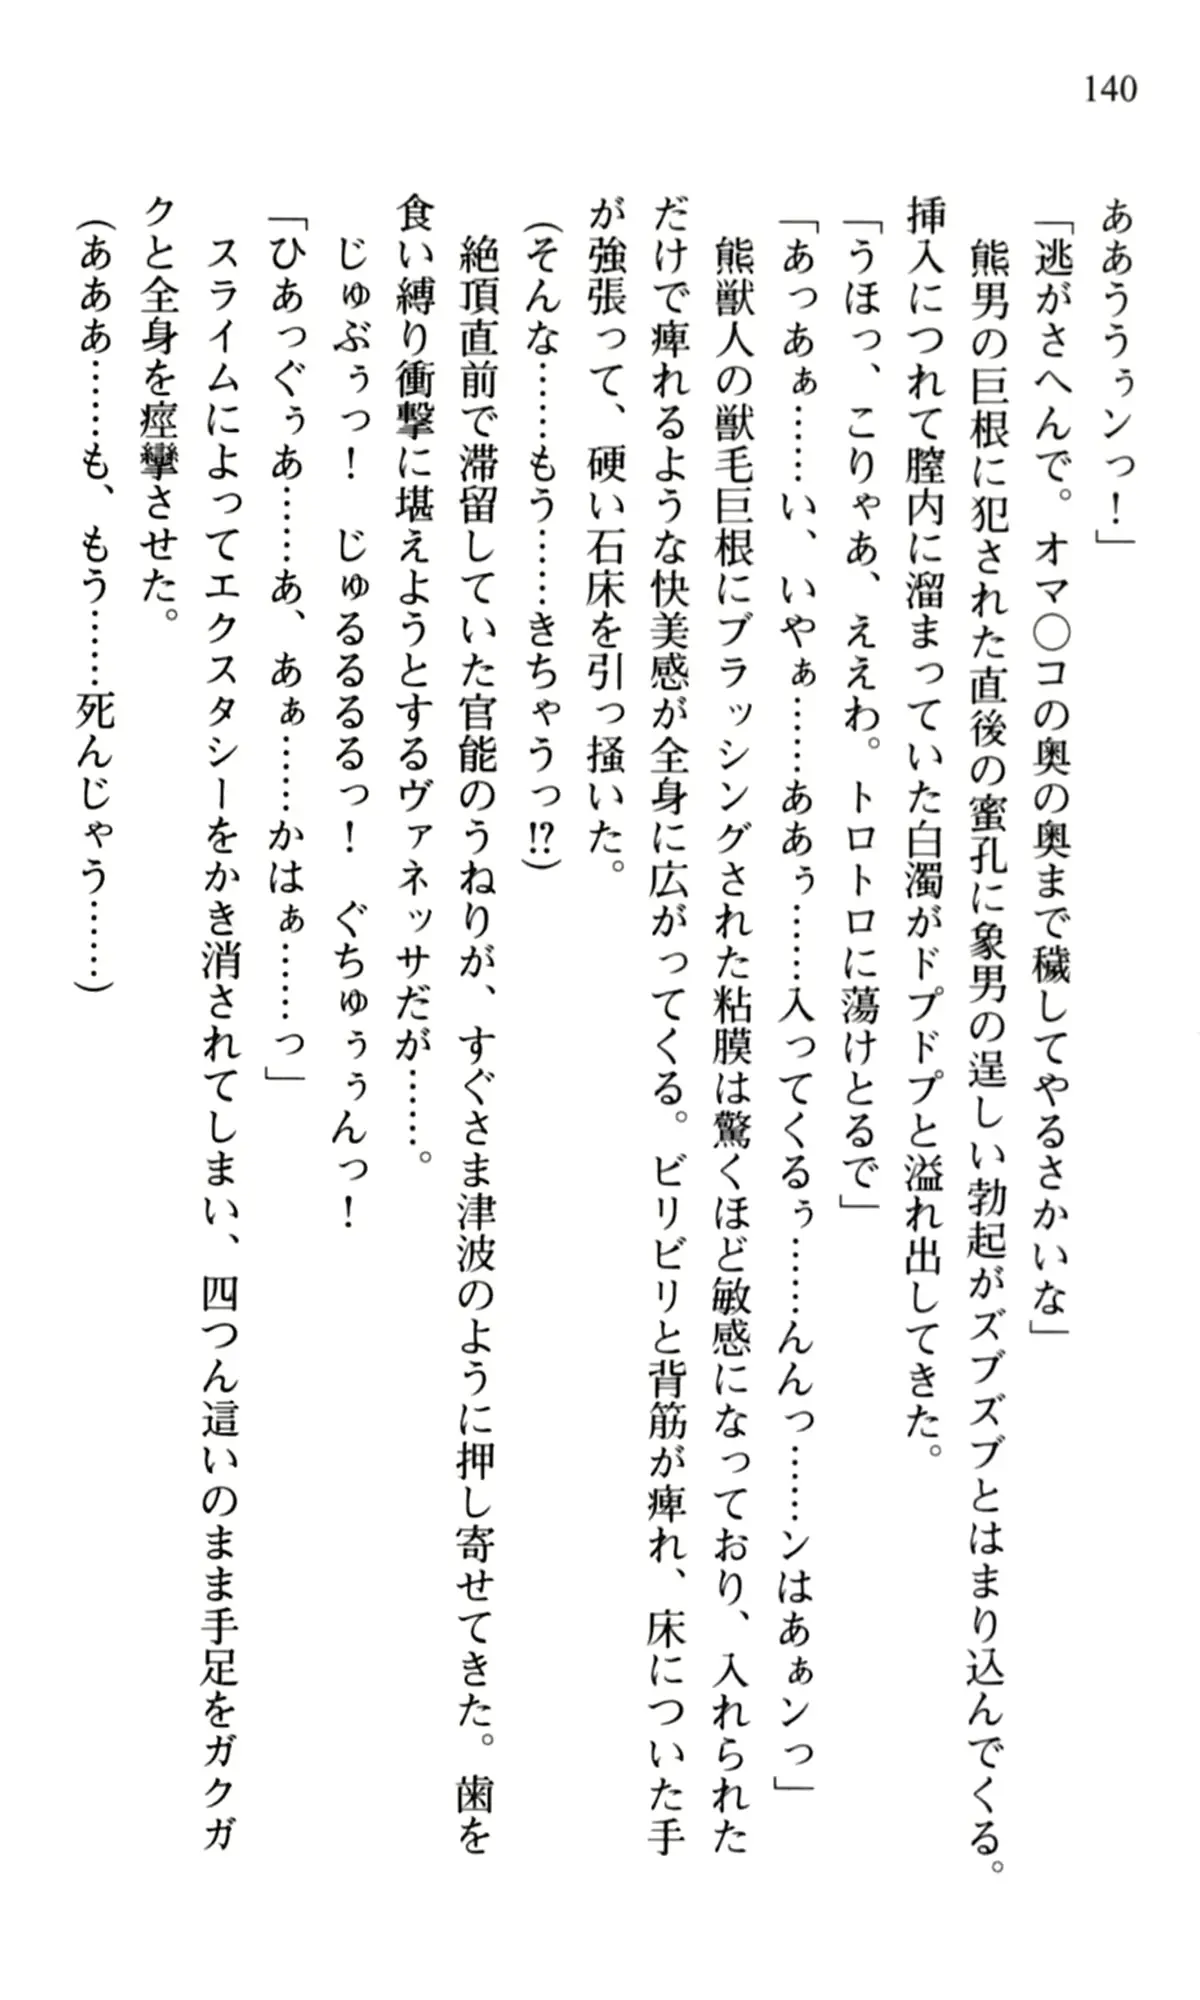 140
ああううぅンっ！」
「逃がさへんで。オマ〇コの奥の奥まで穢してやるさかいな」
熊男の巨根に犯された直後の蜜孔に象男の逞しい勃起がズブズブとはまり込んでくる。
挿入につれて膣内に溜まっていた白濁がドプドプと溢れ出してきた。
「うほっ、こりゃあ、ええわ。トロトロに蕩けとるで」
「あっあぁ……い、いやぁ……ああぅ……入ってくるぅ……んんっ……ンはあぁンっ」
熊獣人の獣毛巨根にブラッシングされた粘膜は驚くほど敏感になっており、入れられた
だけで痺れるような快美感が全身に広がってくる。ビリビリと背筋が痺れ、床についた手
が強張って、硬い石床を引っ掻いた。
（そんな……もう……きちゃうっ⁉）
絶頂直前で滞留していた官能のうねりが、すぐさま津波のように押し寄せてきた。歯を
食い縛り衝撃に堪えようとするヴァネッサだが……。
じゅぶぅっ！　じゅるるるるっ！　ぐちゅぅぅんっ！
「ひあっぐぅあ……あ、あぁ……かはぁ……っ」
スライムによってエクスタシーをかき消されてしまい、四つん這いのまま手足をガクガ
クと全身を痙攣させた。
（あああ……も、もう……死んじゃう……）